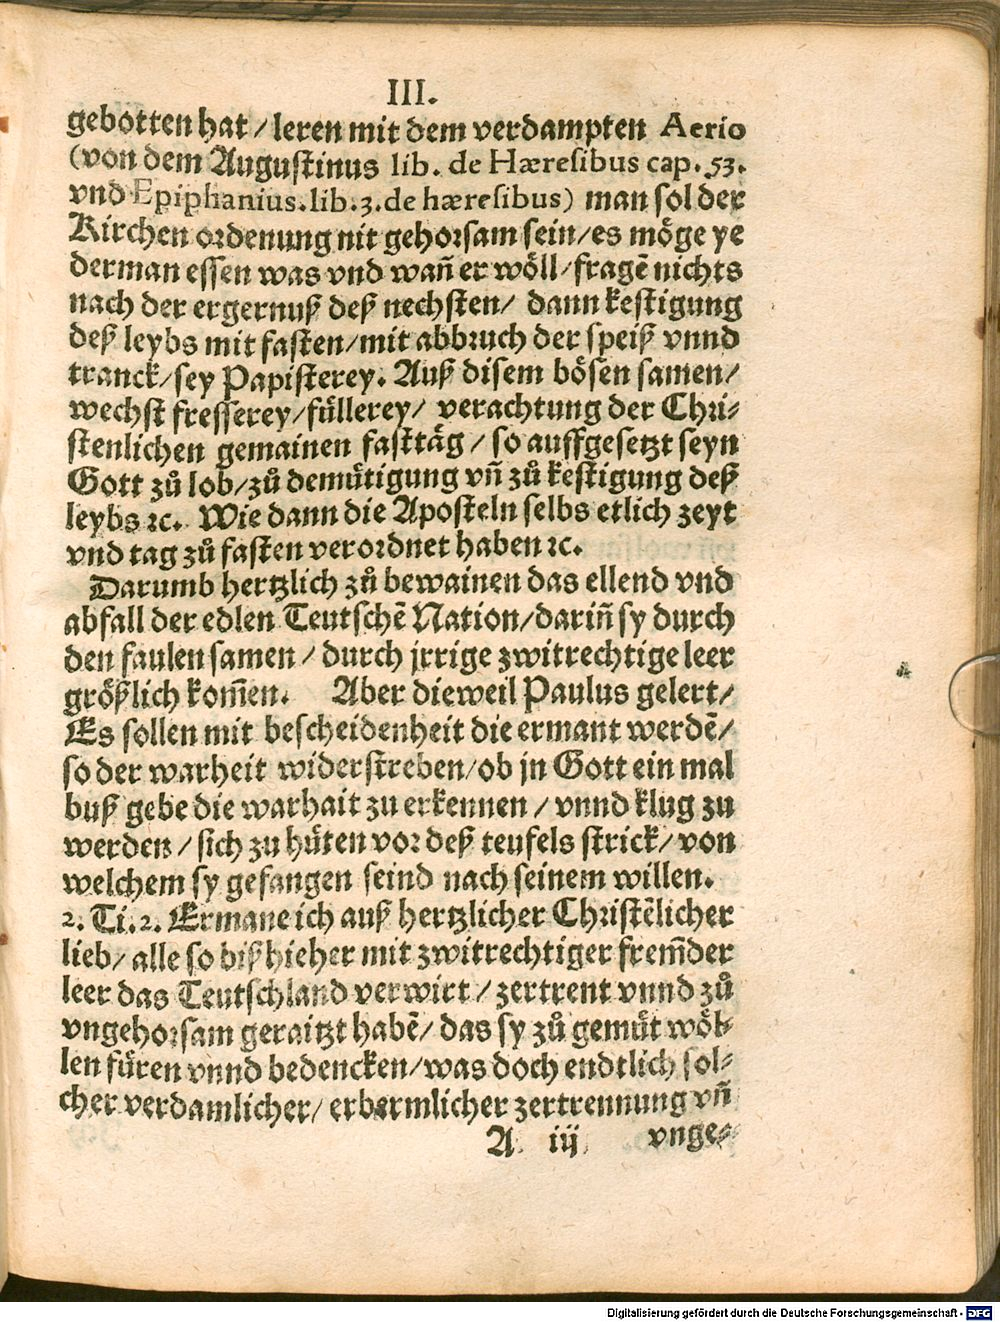 III.
gebotten hat / leren mit dem verdampten Aerio
(von dem Augustinus lib. de Hæresibus cap. 53.
vnd Epiphanius. lib. 3. de hæresibus) man sol der
Kirchen ordenung nit gehorsam sein / es möge ye
derman essen was vnd wañ er wöll / fragẽ nichts
nach der ergernuß deß nechsten / dann kestigung
deß leybs mit fasten / mit abbruch der speiß vnnd
tranck / sey Papisterey. Auß disem bösen samen /
wechst fresserey / füllerey / verachtung der Chri⸗
stenlichen gemainen fasttäg / so auffgesetzt seyn
Gott zů lob / zů demütigung vñ zů kestigung deß
leybs ꝛc. Wie dann die Aposteln selbs etlich zeyt
vnd tag zů fasten verordnet haben ꝛc.
Darumb hertzlich zů bewainen das ellend vnd
abfall der edlen Teutschẽ Nation / dariñ sy durch
den faulen samen / durch jrrige zwitrechtige leer
größlich kom̃en. Aber dieweil Paulus gelert /
Es sollen mit bescheidenheit die ermant werdẽ /
so der warheit widerstreben / ob jn Gott ein mal
buß gebe die warhait zu erkennen / vnnd klug zu
werden / sich zu hüten vor deß teufels strick / von
welchem sy gefangen seind nach seinem willen.
2. Ti. 2. Ermane ich auß hertzlicher Christẽlicher
lieb / alle so biß hieher mit zwitrechtiger frem̃der
leer das Teutschland verwirt / zertrent vnnd zů
vngehorsam geraitzt habẽ / das sy zů gemüt wöl⸗
len füren vnnd bedencken / was doch endtlich sol⸗
cher verdamlicher / erbermlicher zertrennung vñ
A iij vnge⸗
Digitalisierung gefördert durch die Deutsche Forschungsgemeinschaft - DFG